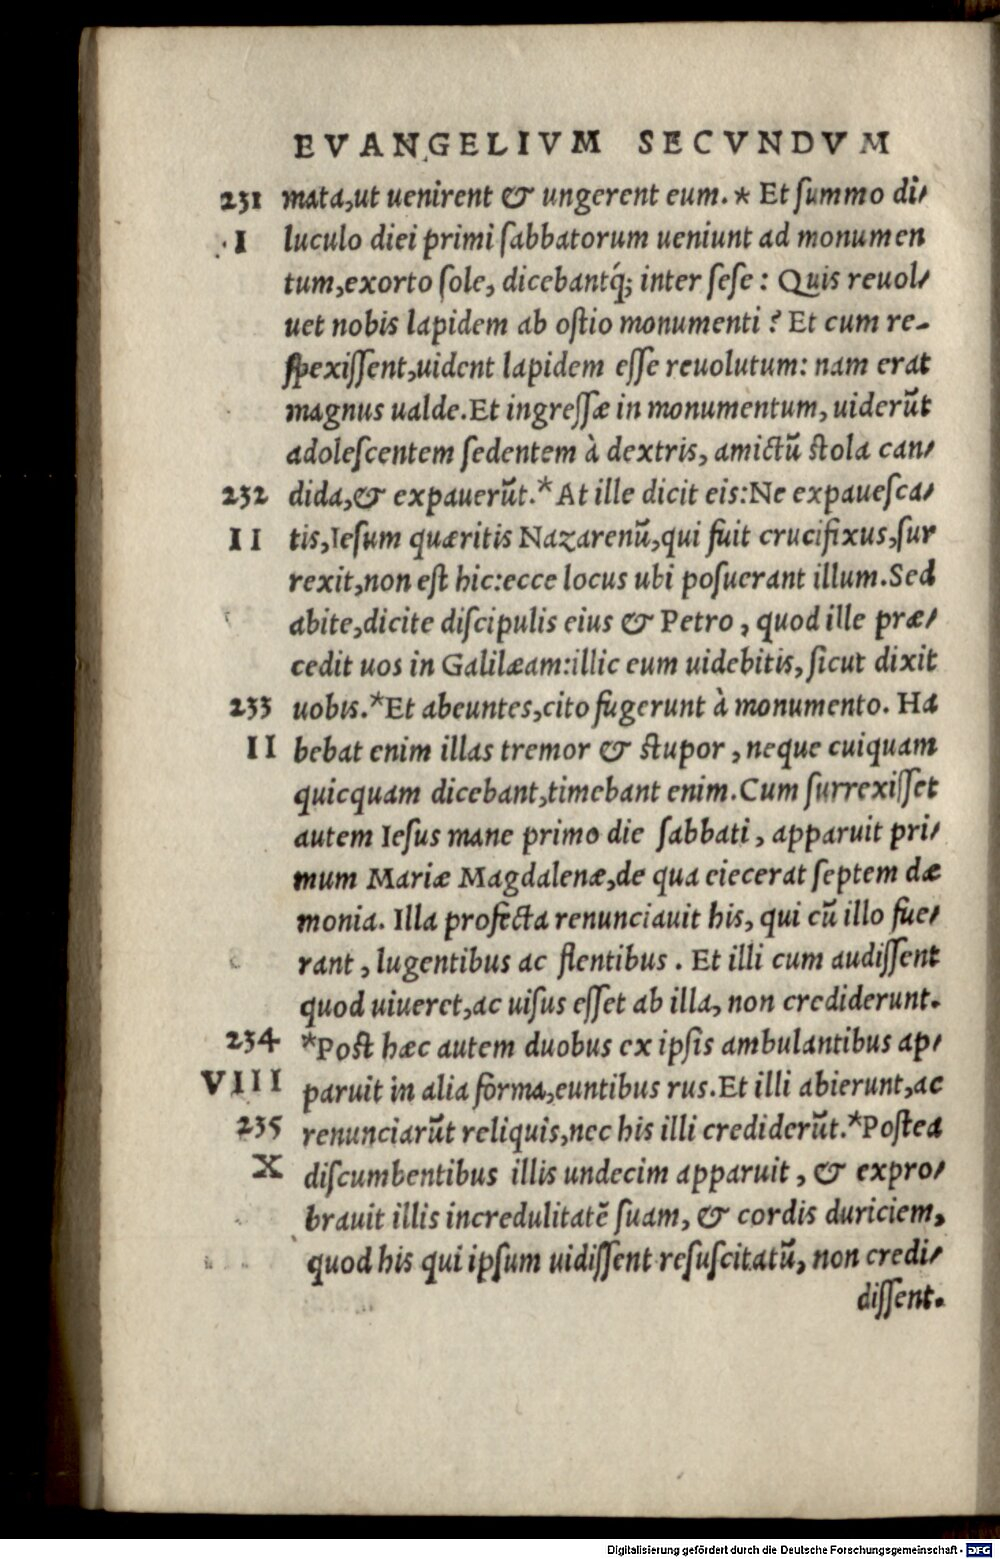 EVANGELIVM SECVNDVM
231 mata,ut uenirent & ungerent eum.* Et ſummo di/
I luculo diei primi ſabbatorum ueniunt ad monumen
tum,exorto ſole, dicebantq́; inter ſeſe : Quis reuol/
uet nobis lapidem ab oſtio monumenti ? Et cum re-
ſpexiſſent,uident lapidem eſſe reuolutum: nam erat
magnus ualde.Et ingreſſæ in monumentum, uiderūt
adoleſcentem ſedentem à dextris, amictū ſtola can/
232 dida,& expauerūt.*At ille dicit eis:Ne expaueſca/
II tis,Ieſum quæritis Nazarenū,qui fuit crucifixus,ſur
rexit,non eſt hic:ecce locus ubi poſuerant illum.Sed
abite,dicite diſcipulis eius & Petro , quod ille præ/
cedit uos in Galilæam:illic eum uidebitis, ſicut dixit
233 uobis.*Et abeuntes,cito fugerunt à monumento. Ha
II bebat enim illas tremor & ſtupor , neque cuiquam
quicquam dicebant,timebant enim.Cum ſurrexiſſet
autem Ieſus mane primo die ſabbati , apparuit pri/
mum Mariæ Magdalenæ,de qua eiecerat ſeptem dæ
monia. Illa profecta renunciauit his, qui cū illo fue/
rant , lugentibus ac flentibus . Et illi cum audiſſent
quod uiueret,ac uiſus eſſet ab illa, non crediderunt.
234 *Poſt hæc autem duobus ex ipſis ambulantibus ap/
VIII paruit in alia forma,euntibus rus.Et illi abierunt,ac
235 renunciarūt reliquis,nec his illi crediderūt.*Poſtea
X diſcumbentibus illis undecim apparuit , & expro/
brauit illis incredulitatē ſuam, & cordis duriciem,
quod his qui ipſum uidiſſent reſuſcitatū, non credi/
diſſent.
Digitalisierung gefördert durch die Deutsche Forschungsgemeinschaft - DFG